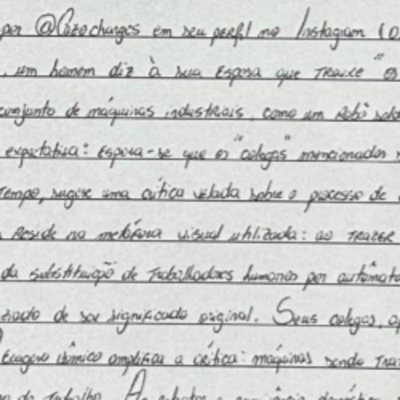 por @Cazocharges em seu perfil no Instagram (o
, um homem diz à sua esposa que trouxe "os
conjunto de máquinas industriais, como um robô sold
expectativa: espera-se que os "colegas" mencionados
tempo, sugere uma crítica velada sobre o processo de
reside na metáfora visual utilizada: ao trazer
da substituição de trabalhadores humanos por autômato
de seu significado original. Seus colegas, ap
exagero cômico amplifica a crítica: máquinas sendo tra
do trabalho. A